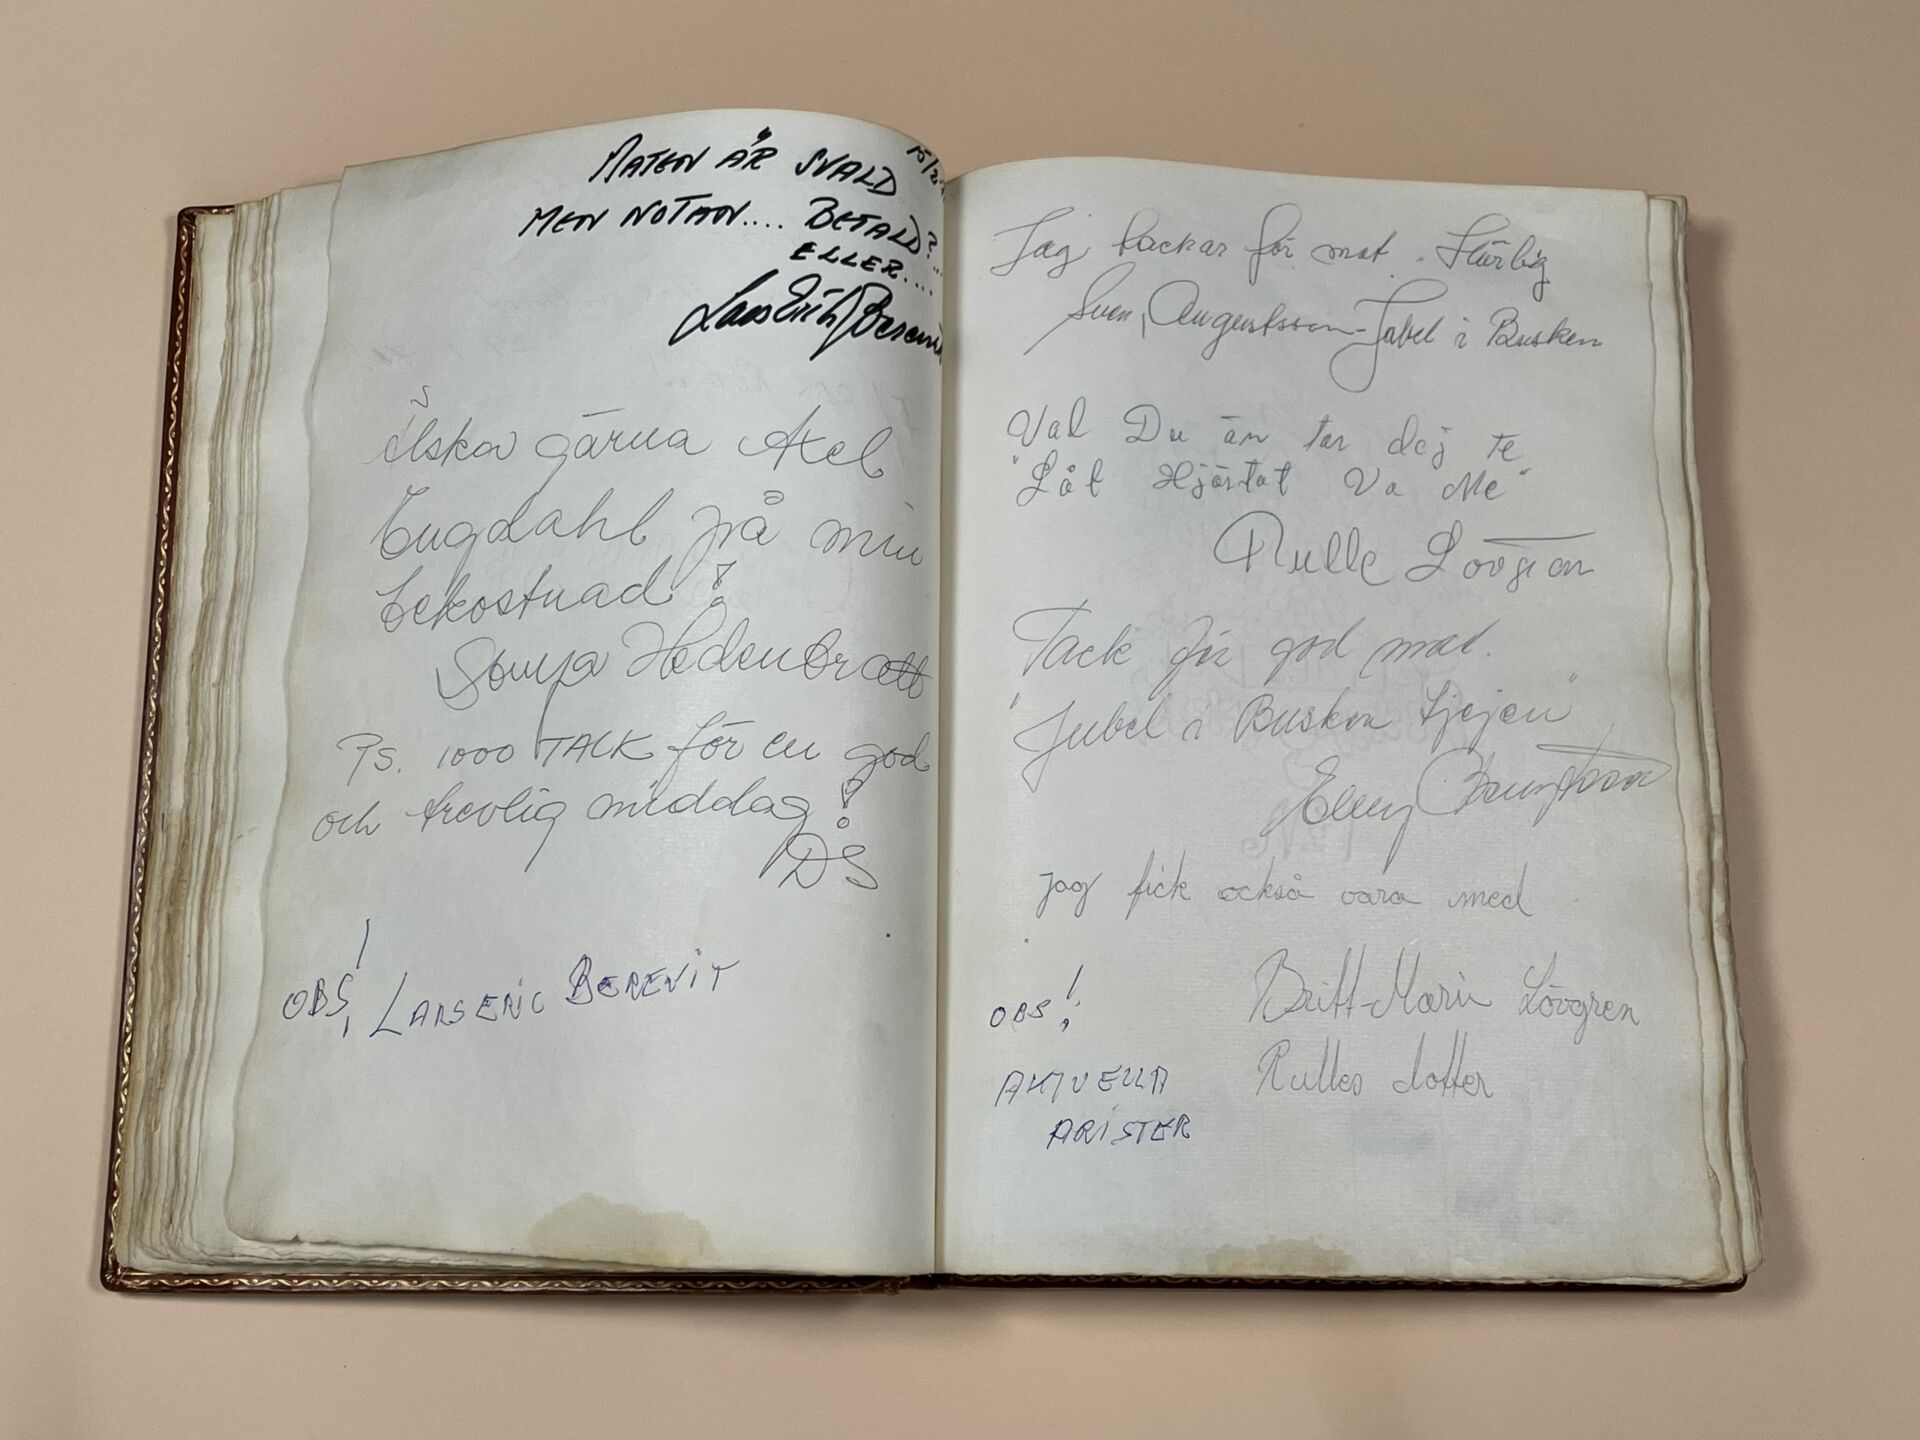 MATEN ÄR SVALD
MEN NOTAN.... BETALD?...
ELLER....
Lars Erik Berenit
Älska gärna Axel
Engdahl på min
bekostnad!
Sonya Hedenbratt
Ps. 1000 TACK för en god
och trevlig middag!
DS
OBS! LARSERIC BERENIT
Jag tackar för mat.
Sven, Augustsson - Jubel i Busken
Vad Du än tar dej te
"Låt Hjärtat Va Me"
Rulle Lövgren
Tack för god mat.
"Jubel i Busken tjejen"
jag fick också vara med
Britt-Marie Lövgren
Rulles dotter
OBS!
AKTUELLA
ARISTER